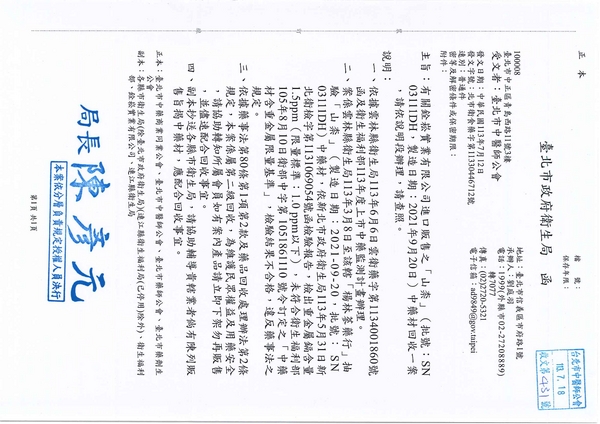 正本
檔　號：
保存年限：
臺北市政府衛生局　函
100008
臺北市中正區青島西路11號3樓
受文者：臺北市中醫師公會
地址：臺北市信義區市府路1號
承辦人：劉庭羽
電話：1999(外縣市02-27208889)
轉7077
傳真：(02)2720-5321
電子信箱：ad989@gov.taipei
發文日期：中華民國113年7月12日
發文字號：北市衛食藥字第1133044671號
速別：普通件
密等及解密條件或保密期限：
附件：
主旨：有關銓崧實業有限公司進口販售之「山柰」（批號：SN
0311DH，製造日期：2021年9月20日）中藥材回收一案
，請依說明段辦理，請查照。
說明：
一、依據雲林縣衛生局113年6月6日雲衛藥字第1134001860號
函及衛生福利部113年度上市中藥監測計畫辦理。
二、案係雲林縣衛生局113年3月8日至該轄「楊林蔘藥行」抽
驗「山柰」（製造日期：2021-09-20，批號：SN
0311DH）中藥材，依新北市政府衛生局113年5月31日新
北衛檢字第1131069054號函檢驗報告，檢出重金屬鎘含量
1.5ppm（限量標準：1.0 ppm以下），未符合衛生福利部
105年8月10日衛部中字第1051861110號令訂定之「中藥
材含重金屬限量基準」，檢驗結果不合格，違反藥事法之
規定。
三、依據藥事法第80條第1項第2款及藥品回收處理辦法第2條
規定，本案係屬第二級回收，為維護民眾權益及用藥安全
，請協助轉知所屬會員如有案內產品請立即下架勿再販售
，並儘速配合回收事宜。
四、副本抄送各縣市衛生局，請協助輔導貴轄業者倘有陳列販
售旨揭中藥材，應配合回收事宜。
正本：臺北市中藥商業同業公會、臺北市中醫師公會、臺北市藥師公會、臺北市藥劑生
公會
副本：各縣市衛生局(除臺北市政府衛生局)(連江縣衛生福利局(已停用)除外)、衛生福利
部、銓崧實業有限公司、連江縣衛生局
局長 陳彥元
本案依分層負責規定授權人員決行
第1頁 共1頁
台北市中醫師公會
113.7.18
收文第451號